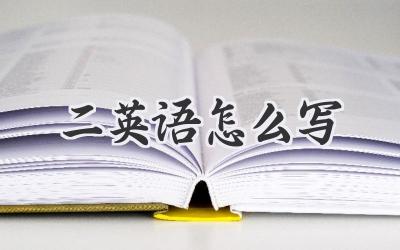 二英语怎么写